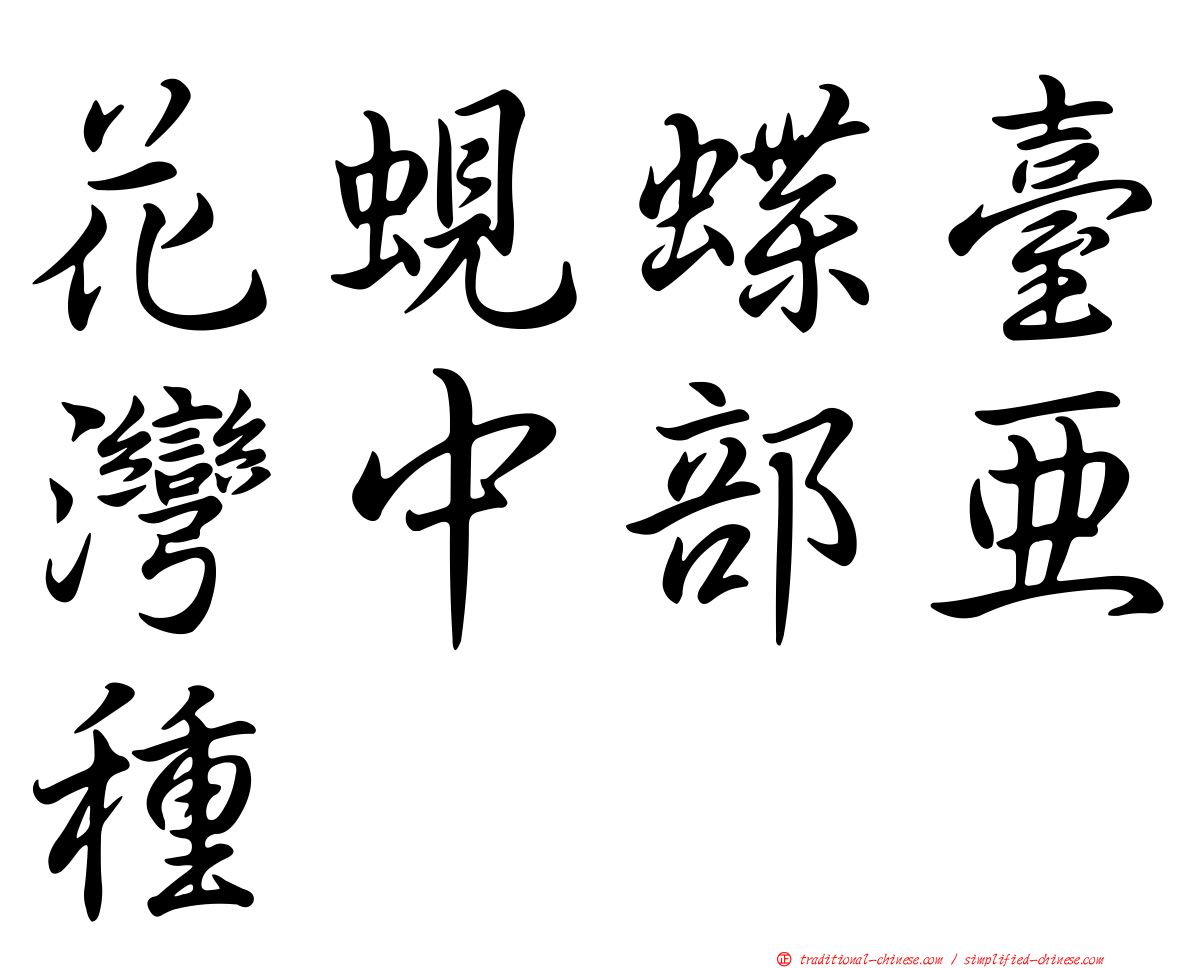 花蜆蝶臺
灣中部亜
種
正 traditional-chinese.com / simplified-chinese.com